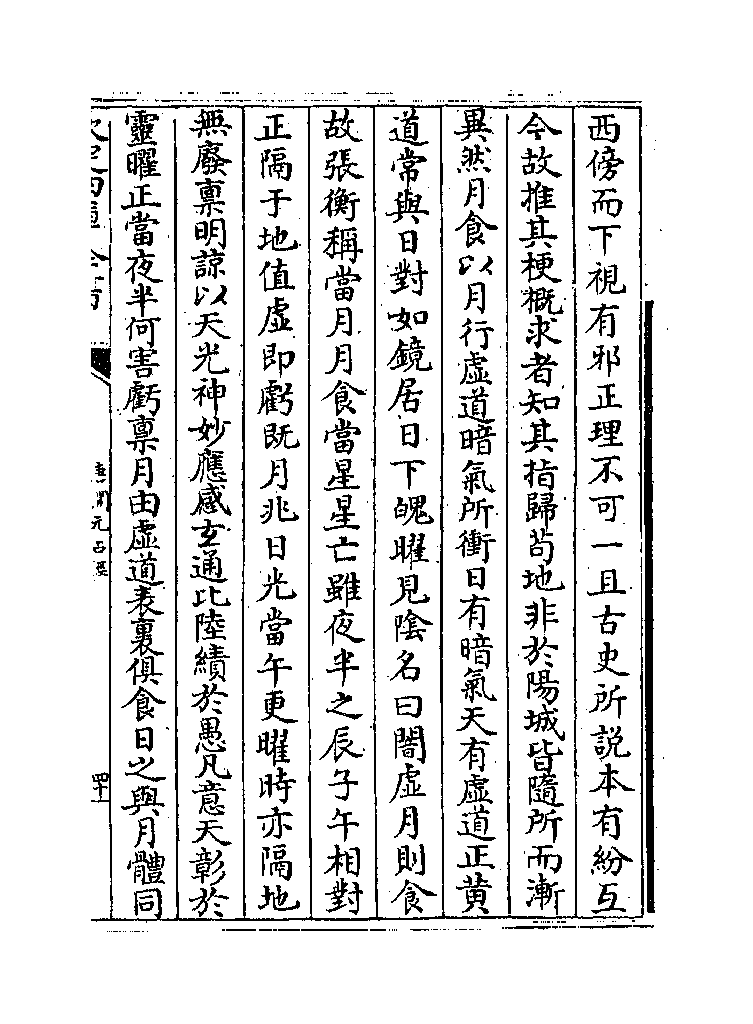 西傍而下視有邪正理不可一且古史所説本有紛互
今故推其梗概求者知其指歸苟地非於陽城皆隨所而漸
異然月食以月行虛道暗氣所衝日有暗氣天有虛道正黄
道常與日對如鏡居日下魄曜見陰名曰闇虛月則食
故張衡稱當月月食當星星亡雖夜半之辰子午相對
正隔于地值虛即虧既月兆日光當午更曜時亦隔地
無廢稟明諒以天光神妙應感玄通比陸績於愚凡意天彰於
靈曜正當夜半何害虧稟月由虛道表裏俱食日之與月體同
唐開元占經